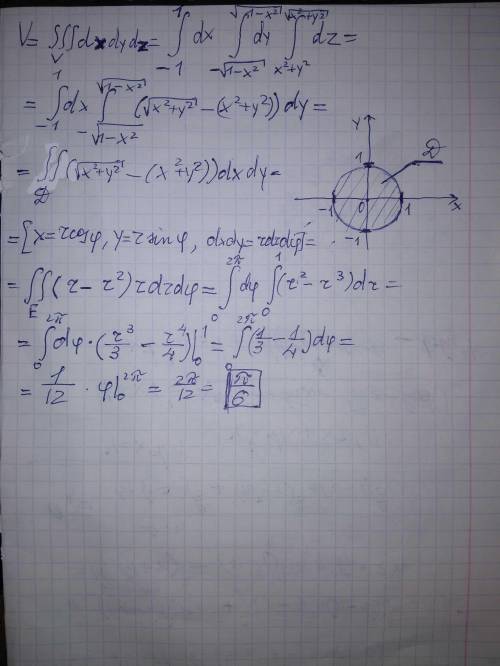 V = ∭_V dxdydz = ∫_{-1}^{1} dx ∫_{-√(1-x²)}^{√(1-x²)} dy ∫_{x²+y²}^{√(x²+y²)} dz =
= ∫_{-1}^{1} dx ∫_{-√(1-x²)}^{√(1-x²)} (√(x²+y²) - (x²+y²)) dy =
= ∬_D (√(x²+y²) - (x²+y²)) dxdy =
= [x = r cos φ, y = r sin φ, dxdy = r dr dφ] =
= ∬_E (r - r²) r dr dφ = ∫_0^{2π} dφ ∫_0^1 (r² - r³) dr =
= ∫_0^{2π} dφ · (r³/3 - r⁴/4)|_0^1 = ∫_0^{2π} (1/3 - 1/4) dφ =
= 1/12 · φ|_0^{2π} = 2π/12 = π/6
Y
1
D
-1
0
1
X
-1